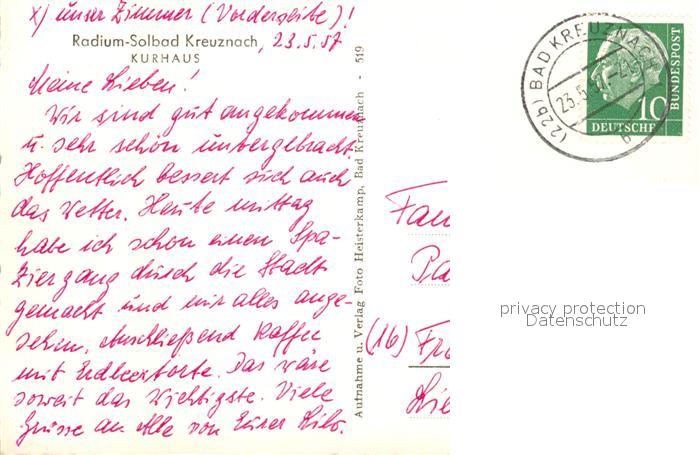 x) unser Zimmer (Vorderseite)!
Radium-Solbad Kreuznach, 23.5.57
KURHAUS
Meine Lieben!
Wir sind gut angekommen
u. sehr schön untergebracht.
Hoffentlich bessert sich auch
das Wetter. Heute mittag
habe ich schon einen Spa-
ziergang durch die Stadt
gemacht und mir alles ange-
sehen. Anschließend Kaffee
mit Erdbeertorte. Das wäre
soweit das Wichtigste. Viele
Grüsse an Alle von Eurer
Aufnahme u. Verlag Foto Heisterkamp, Bad Kreuznach - 519
(22b) BAD KREUZNACH
23.5.57
b
10
DEUTSCHE
BUNDESPOST
Fam
(16) Fra
privacy protection
Datenschutz